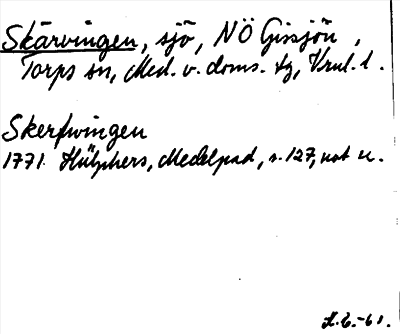 Skärvingen, sjö, NÖ Gissjön,
Torps sn, Med. v. doms. tg, Vnl. l.
Skerfwingen
1771 Hülphers, Medelpad, s. 127, not u.